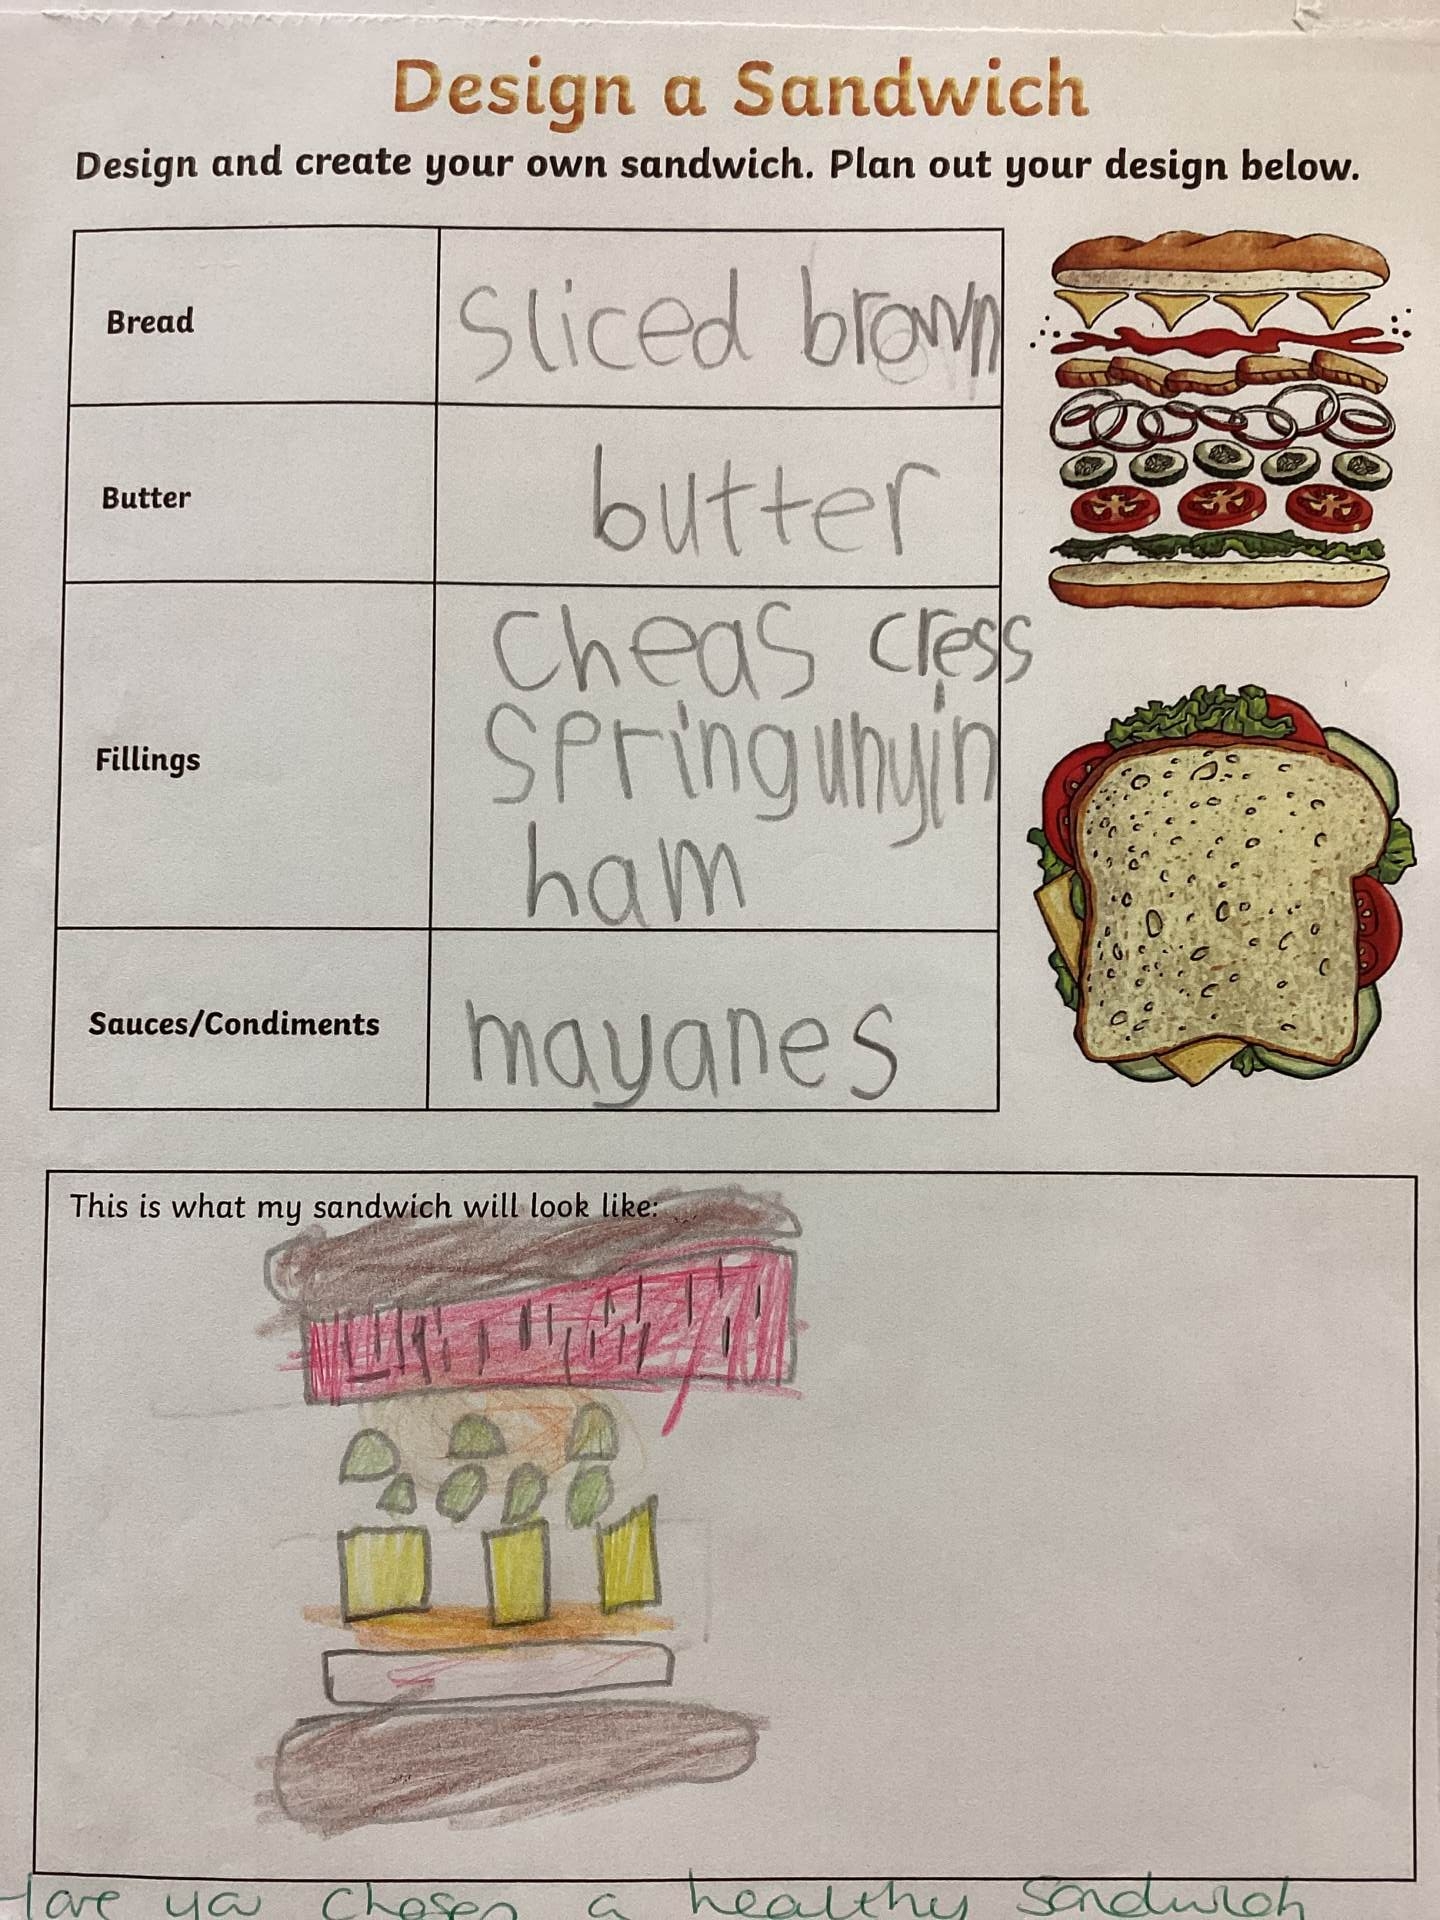 Design a Sandwich
Design and create your own sandwich. Plan out your design below.
Bread
sliced brown
Butter
butter
Fillings
cheas cress
springunyin
ham
Sauces/Condiments
mayanes
This is what my sandwich will look like:
a healthy sandwich